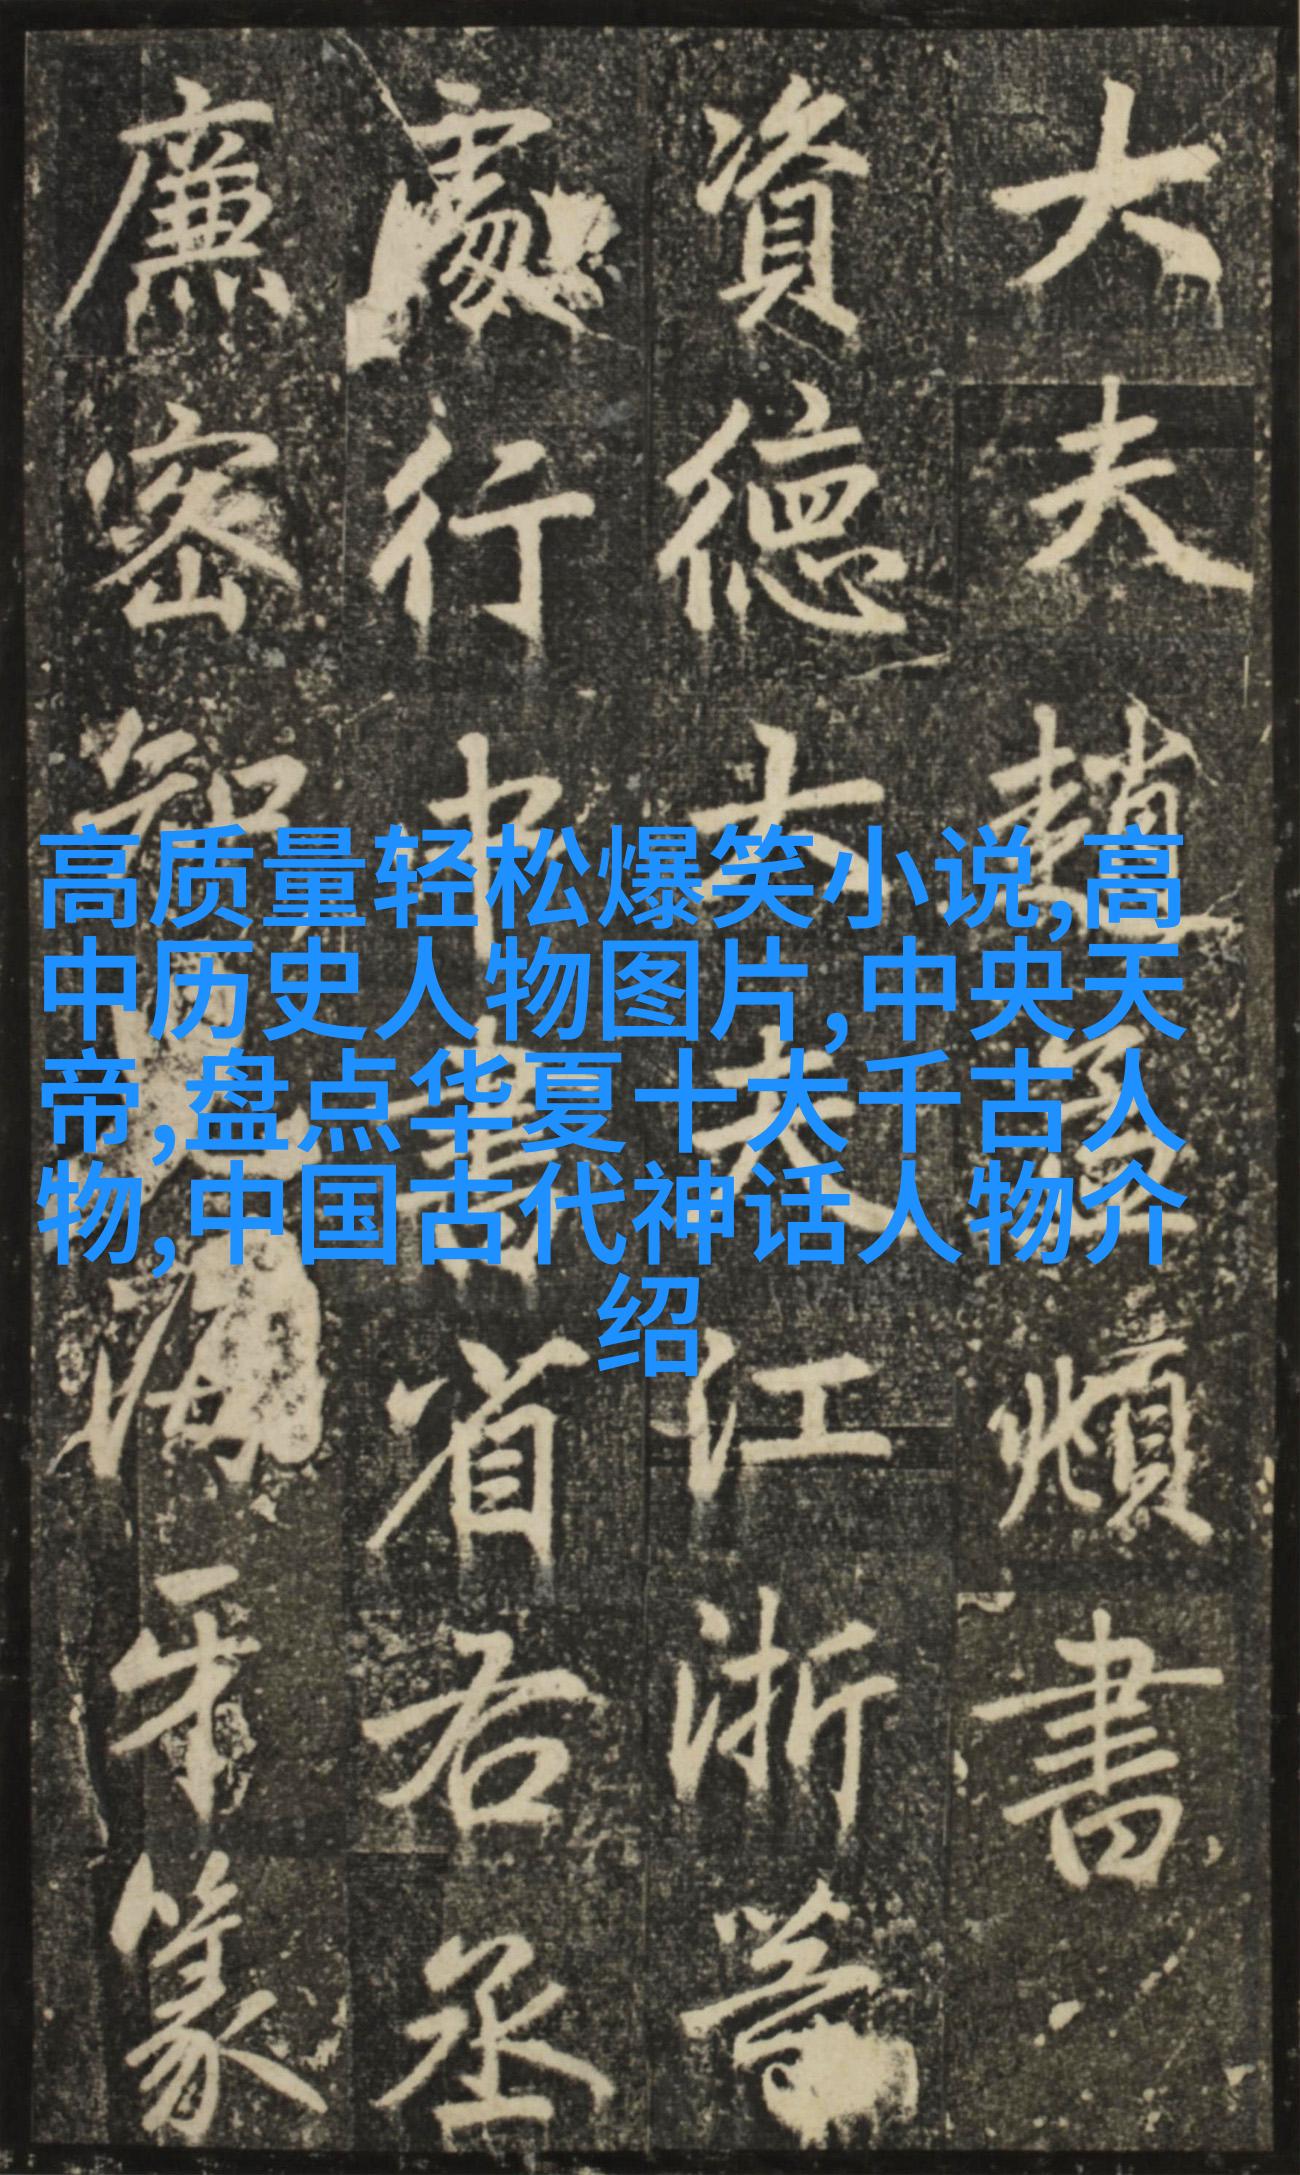 高质量轻松爆笑小说,高
中历史人物图片,中央天
帝,盘点华夏十大千古人
物,中国古代神话人物介
绍
大夫趙孟頫書
資德大夫江浙等
處行中書省右丞
廉密知兒海牙篆